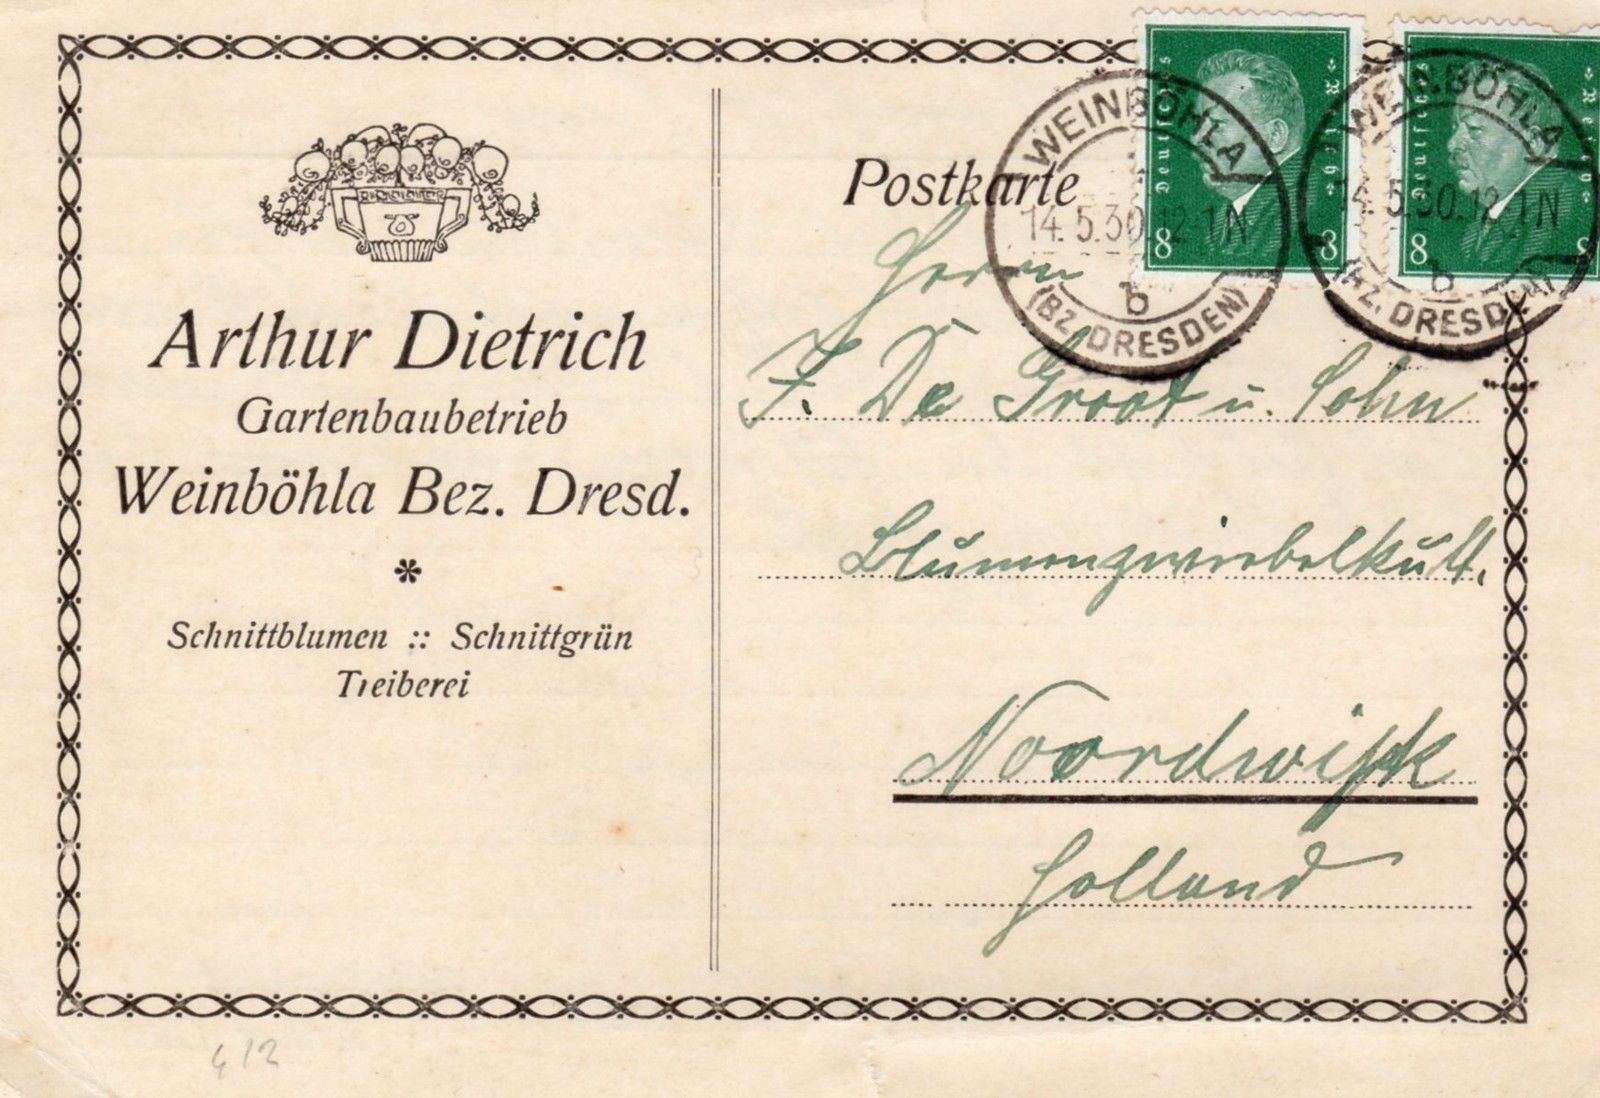 Arthur Dietrich
Gartenbaubetrieb
Weinböhla Bez. Dresd.
*
Schnittblumen :: Schnittgrün
Treiberei
4/2
Postkarte
Deutsches Reich
8 8
Deutsches Reich
8 8
WEINBÖHLA
14.5.30.12-1N
b
(BZ. DRESDEN)
WEINBÖHLA
14.5.30.12-1N
b
(BZ. DRESDEN)
Herrn
F. De Groot u. Sohn
Blumenzwiebelkult.
Noordwijk
Holland